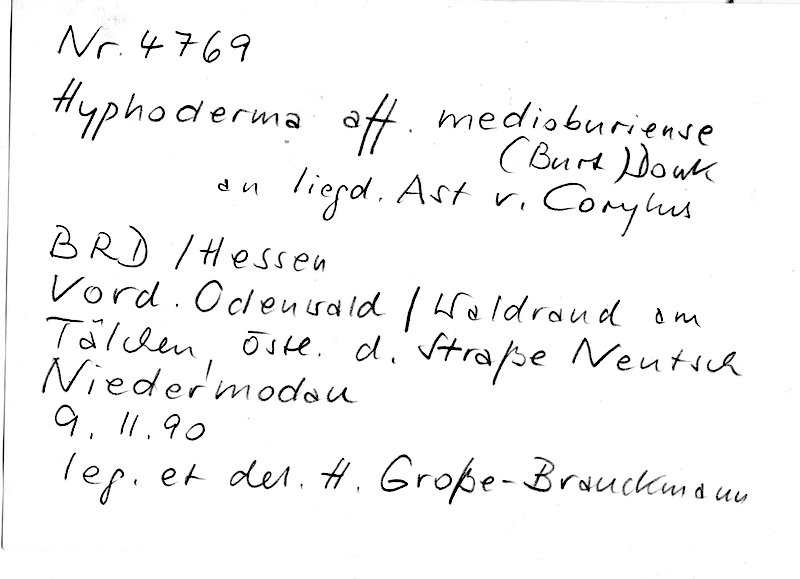 Nr. 4769
Hyphoderma aff. medioburiense
(Burt) Donk
an liegd. Ast v. Corylus
BRD / Hessen
Vord. Odenwald / Waldrand am
Tälchen, östl. d. Straße Neutsch
Niedermodau
9. 11. 90
leg. et det. H. Große-Brauckmann